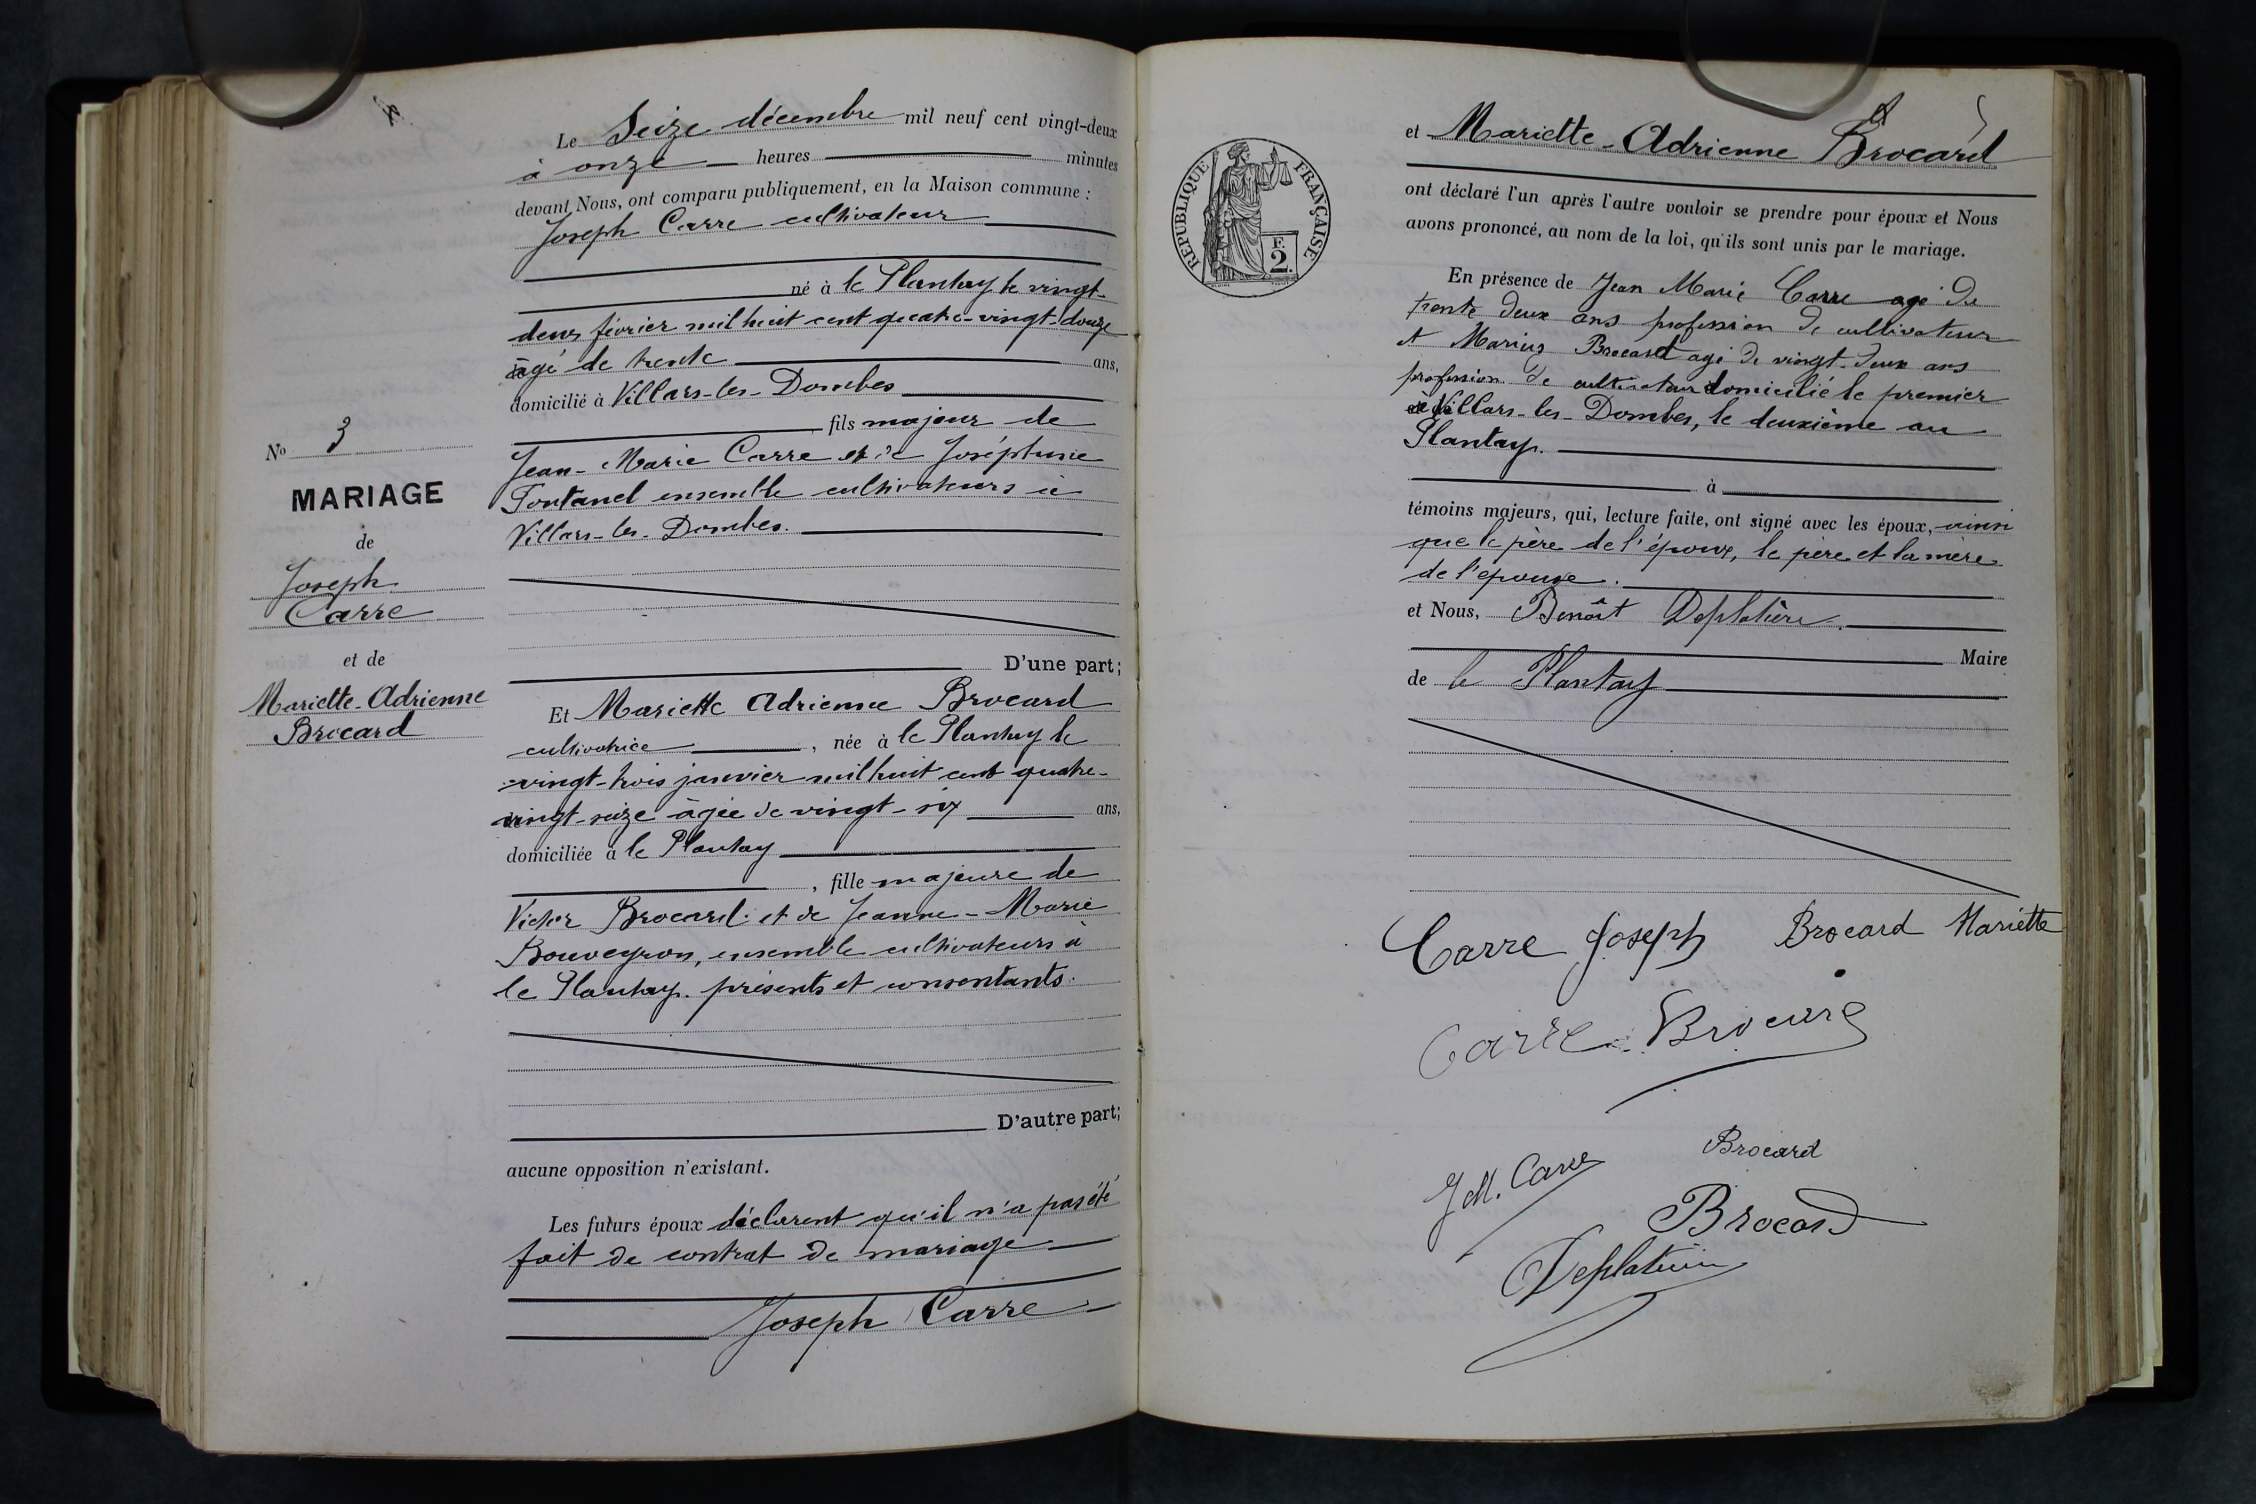 Le Seize décembre mil neuf cent vingt-deux
à onze heures minutes
devant Nous, ont comparu publiquement, en la Maison commune :
Joseph Carre cultivateur
né à le Plantay le vingt-
deux février mil huit cent quatre-vingt-douze
âgé de trente ans,
domicilié à Villars-les-Dombes
fils majeur de
Jean-Marie Carre et de Joséphine
Fontanel ensemble cultivateurs à
Villars-les-Dombes.
D'une part;
No 3
MARIAGE
de
Joseph
Carre
et de
Mariette-Adrienne
Brocard
Et Mariette Adrienne Brocard
cultivatrice , née à le Plantay le
vingt-trois janvier mil huit cent quatre-
vingt-seize âgée de vingt-six ans,
domiciliée à le Plantay
, fille majeure de
Victor Brocard et de Jeanne-Marie
Bouveyron, ensemble cultivateurs à
le Plantay. présents et consentants.
D'autre part;
aucune opposition n'existant.
Les futurs époux déclarent qu'il n'a pas été
fait de contrat de mariage
Joseph Carre
RÉPUBLIQUE FRANÇAISE
F.
2.
et Mariette-Adrienne Brocard
ont déclaré l'un après l'autre vouloir se prendre pour époux et Nous
avons prononcé, au nom de la loi, qu'ils sont unis par le mariage.
En présence de Jean Marie Carre agé de
trente deux ans profession de cultivateur
et Marius Brocard agé de vingt-deux ans
profession de cultivateur domicilié le premier
à Villars-les-Dombes, le deuxième au
Plantay.
à
témoins majeurs, qui, lecture faite, ont signé avec les époux, ainsi
que le père de l'époux, le père et la mère
de l'épouse.
et Nous, Benoît Deplatière.
Maire
de le Plantay
Carre Joseph Brocard Mariette
Carre Brocard
J M. Carre Brocard
Brocard
Deplatière